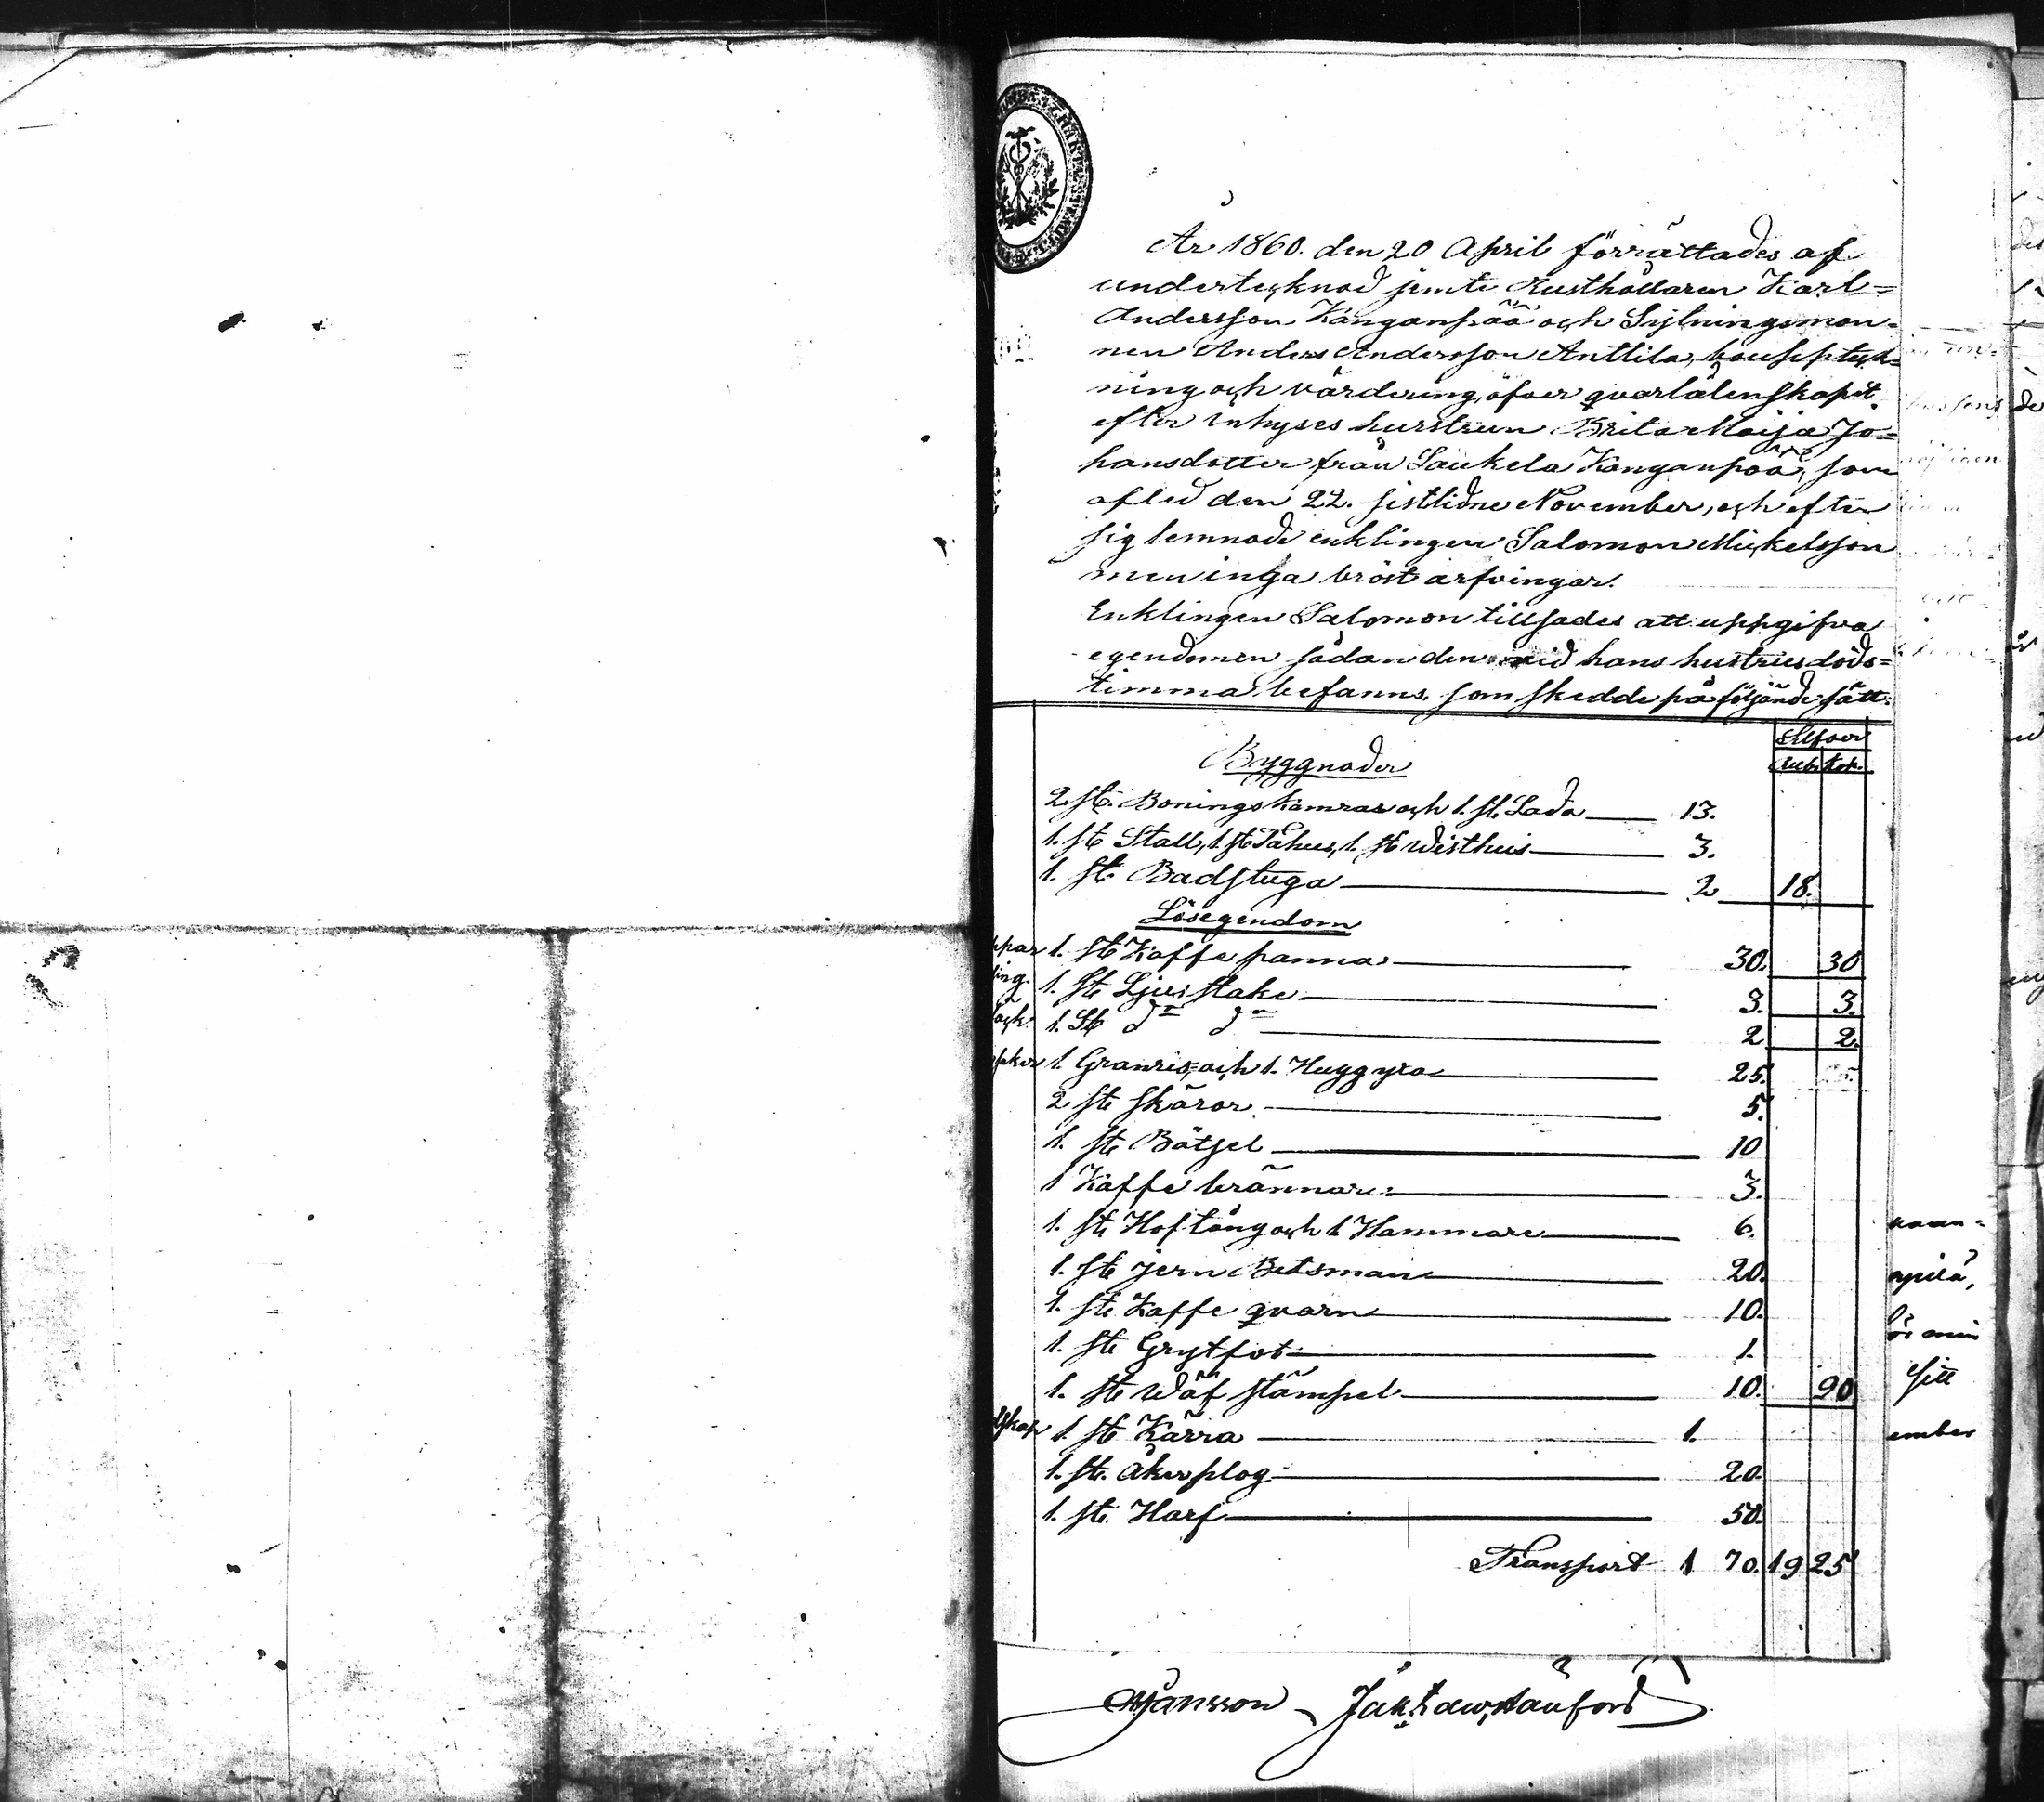 År 1860. den 20 April förrättades af
undertecknad jemte Rusthållaren Karl=
Andersson Kanganpää och Sytningsman-
nen Anders Andersson Anttila, bouppteck=
ning och värdering, öfver qvarlåtenskapet
efter Inhyses hurstrun Brita Maija Jo=
hansdotter från Saukela Kanganpää, som
afled den 22. sistlidne November, och efter
sig lemnade enklingen Salomon Mickelsson
men inga bröst arfvingar.
Enklingen Salomon tillsades att uppgifva
egendomen sådan den vid hans hustrus döds=
timma befanns. som skedde på följande sätt:
Silfver
Byggnader Rub. Kop.
2 st. Boningskamrar och 1. st. Lada 13.
1. st Stall, 1 st Fähus, 1. st Wisthus 3.
1. st. Badstuga 2 18.
Lösegendom
ppar 1. st Kaffe panna 30. 30
ing. 1. st Ljus stake 3. 3.
1. st do do 2 2.
1. Granris= och 1. Huggyxa 25.
2 st skäror 5.
1. st. Bätsel 10
1 Kaffe brännare 3.
1. st. Hoftång och 1 Hammare 6.
1. st jern Betsman 20.
1. st. Kaffe qvarn 10.
1. st. Grytfot 1.
1. st Wäf stämpel 10. 90
dskap 1. st Kärra 1.
1. st. Åkerplog 20.
1. st. Harf 50.
Transport 1 70. 19 25
ember